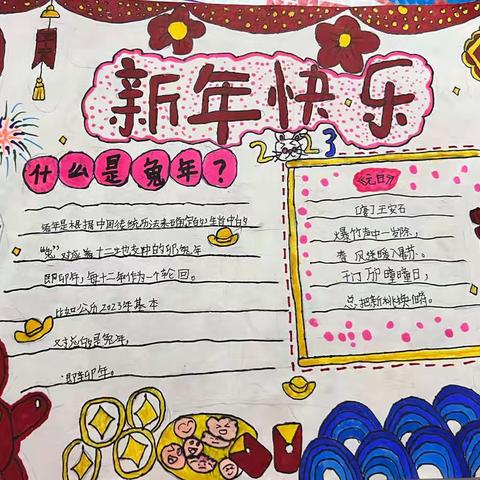 新年快乐
2023
什么是兔年？
兔年是根据中国传统历法来确定的生肖中的
“兔”对应着十二地支中的卯兔年
即卯年，每十二年作为一个轮回。
比如公历2023年基本
对应的是兔年，
即卯年。
《元日》
王安石
爆竹声中一岁除，
春风送暖入屠苏。
千门万户曈曈日，
总把新桃换旧符。